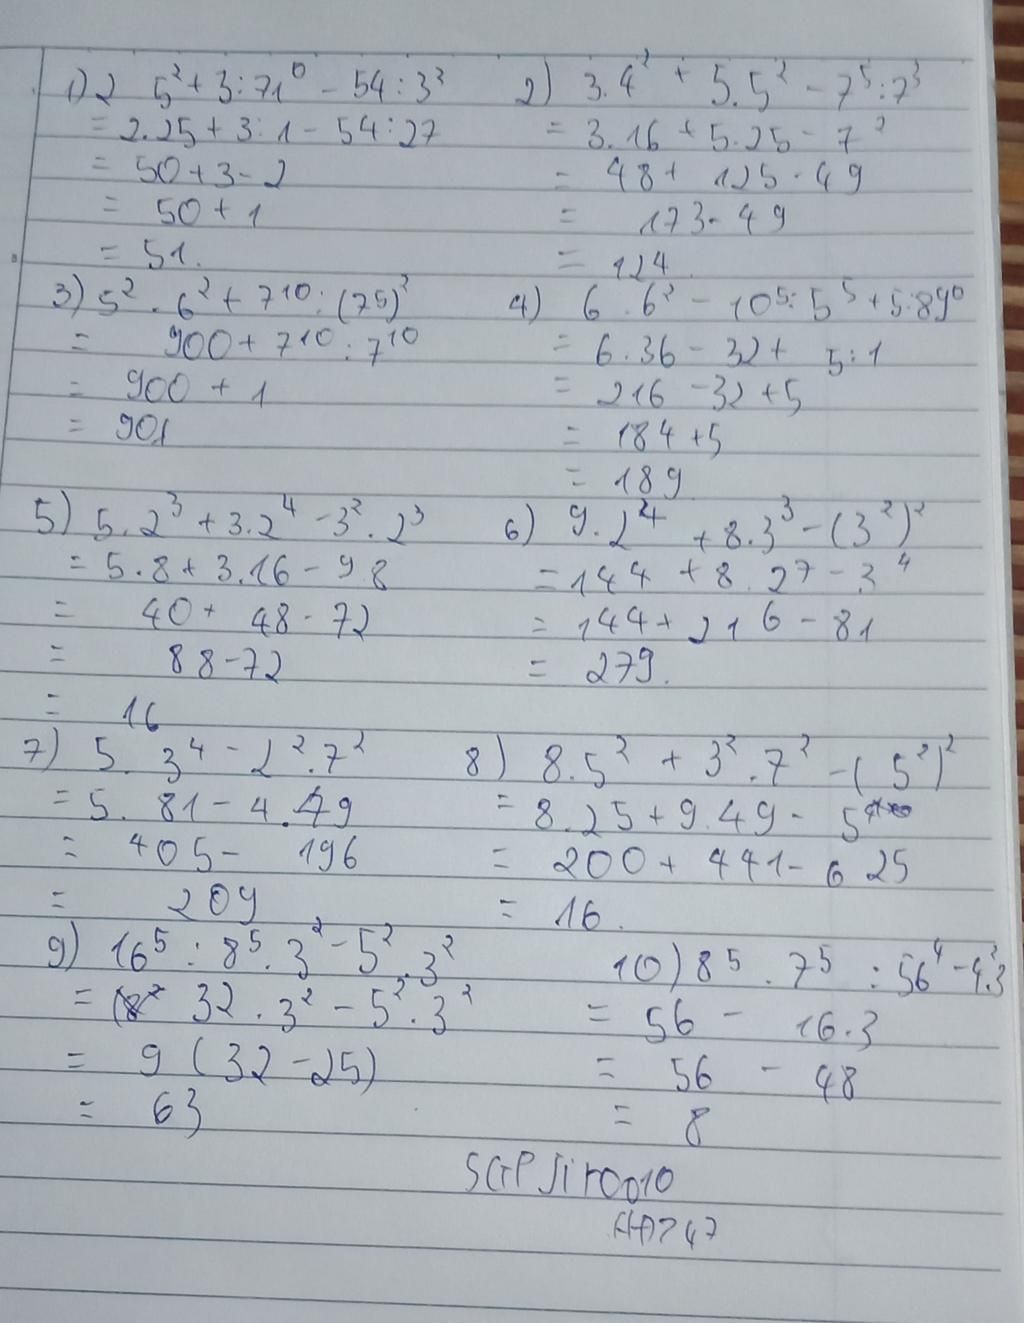 1) 2 5² + 3 : 71⁰ - 54 : 3³
= 2.25 + 3 : 1 - 54 : 27
= 50 + 3 - 2
= 50 + 1
= 51.
2) 3.4² + 5.5² - 7⁵ : 7³
= 3.16 + 5.25 - 7²
= 48 + 125 - 49
= 173 - 49
= 124
3) 5² . 6² + 7¹⁰ : (75)²
= 900 + 7¹⁰ : 7¹⁰
= 900 + 1
= 901
4) 6 . 6² - 10⁵ : 5⁵ + 5 : 89⁰
= 6.36 - 32 + 5 : 1
= 216 - 32 + 5
= 184 + 5
= 189
5) 5.2³ + 3.2⁴ - 3² . 2³
= 5.8 + 3.16 - 9 8
= 40 + 48 - 72
= 88 - 72
= 16
6) 9.2⁴ + 8.3³ - (3²)²
= 144 + 8.27 - 3⁴
= 144 + 216 - 81
= 279.
7) 5. 3⁴ - 2².7²
= 5. 81 - 4.49
= 405 - 196
= 209
8) 8.5² + 3².7² - (5²)²
= 8.25 + 9.49 - 5⁴
= 200 + 441 - 625
= 16.
9) 16⁵ : 8⁵. 3² - 5². 3²
= 32 . 3² - 5² . 3²
= 9 (32 - 25)
= 63
10) 8⁵ . 7⁵ : 56⁴ - 4².3
= 56 - 16.3
= 56 - 48
= 8